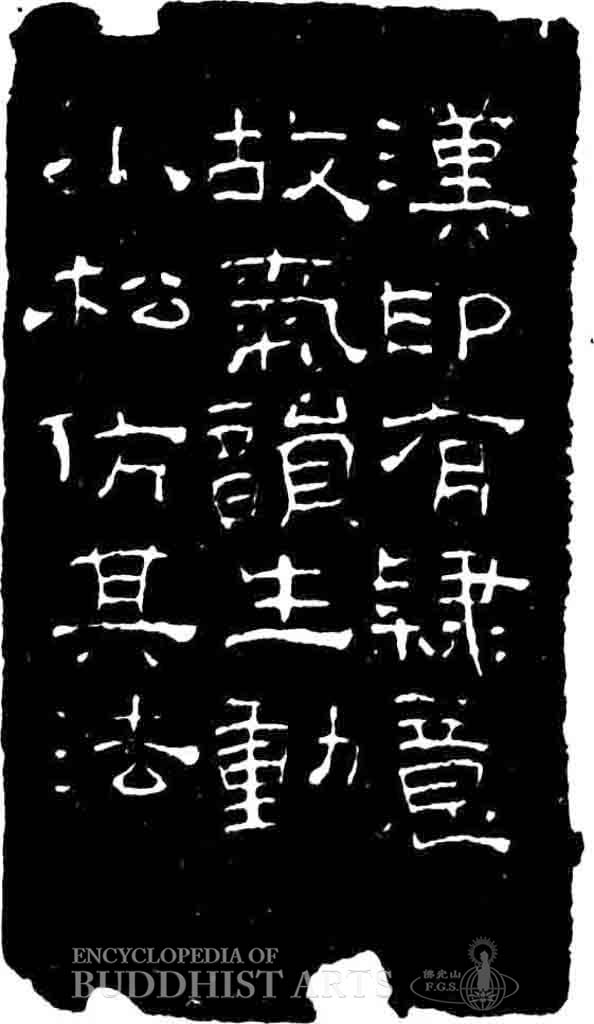 漢印有隸意
故氣韻生動
小松仿其法
ENCYCLOPEDIA OF
BUDDHIST ARTS
佛光山
F.G.S.